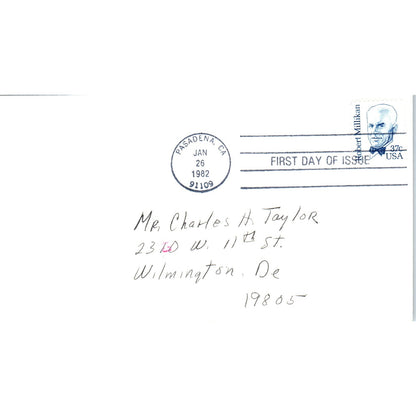 PASADENA, CA
JAN
26
1982
91109
FIRST DAY OF ISSUE
Robert Millikan
37c
USA
Mr. Charles H. Taylor
W. 11th St.
Wilmington. De
19805